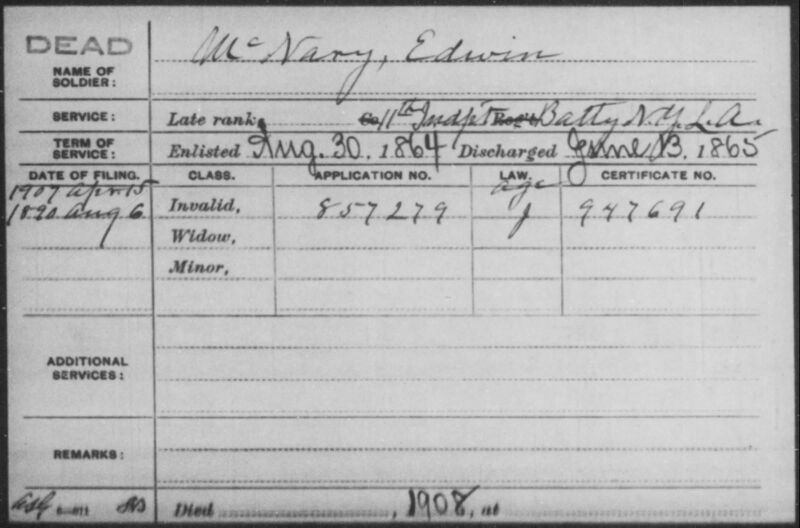 DEAD
NAME OF SOLDIER: McNary, Edwin
SERVICE: Late rank, Co 11th Indpt Reg't Batty N.Y. L.A.
TERM OF SERVICE: Enlisted Aug. 30, 1864 Discharged June 13, 1865
DATE OF FILING. CLASS. APPLICATION NO. LAW. CERTIFICATE NO.
1907 Apr 15 age
1890 Aug 6 Invalid, 857279 J 947691
Widow,
Minor,
ADDITIONAL SERVICES:
REMARKS:
Died , 1908, at